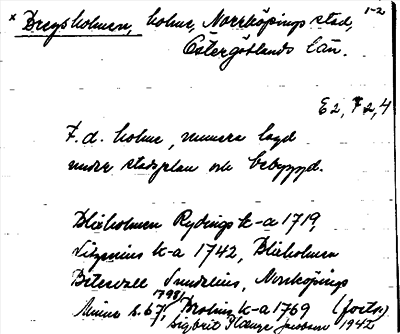 x Dregsholmen, holme, Norrköpings stad, 1-2
Östergötlands län.
E2, F2,4
F.d. holme, numera lagd
under stadsplan och bebyggd.
Blixholmen Rydings k-a 1719,
k-a 1742, Blixholmen
Sundelius, Norrköpings
Minne s. 67, 1798, Brolins k-a 1769 (forts.)
Sigbrit Plænge Jacobson 1942